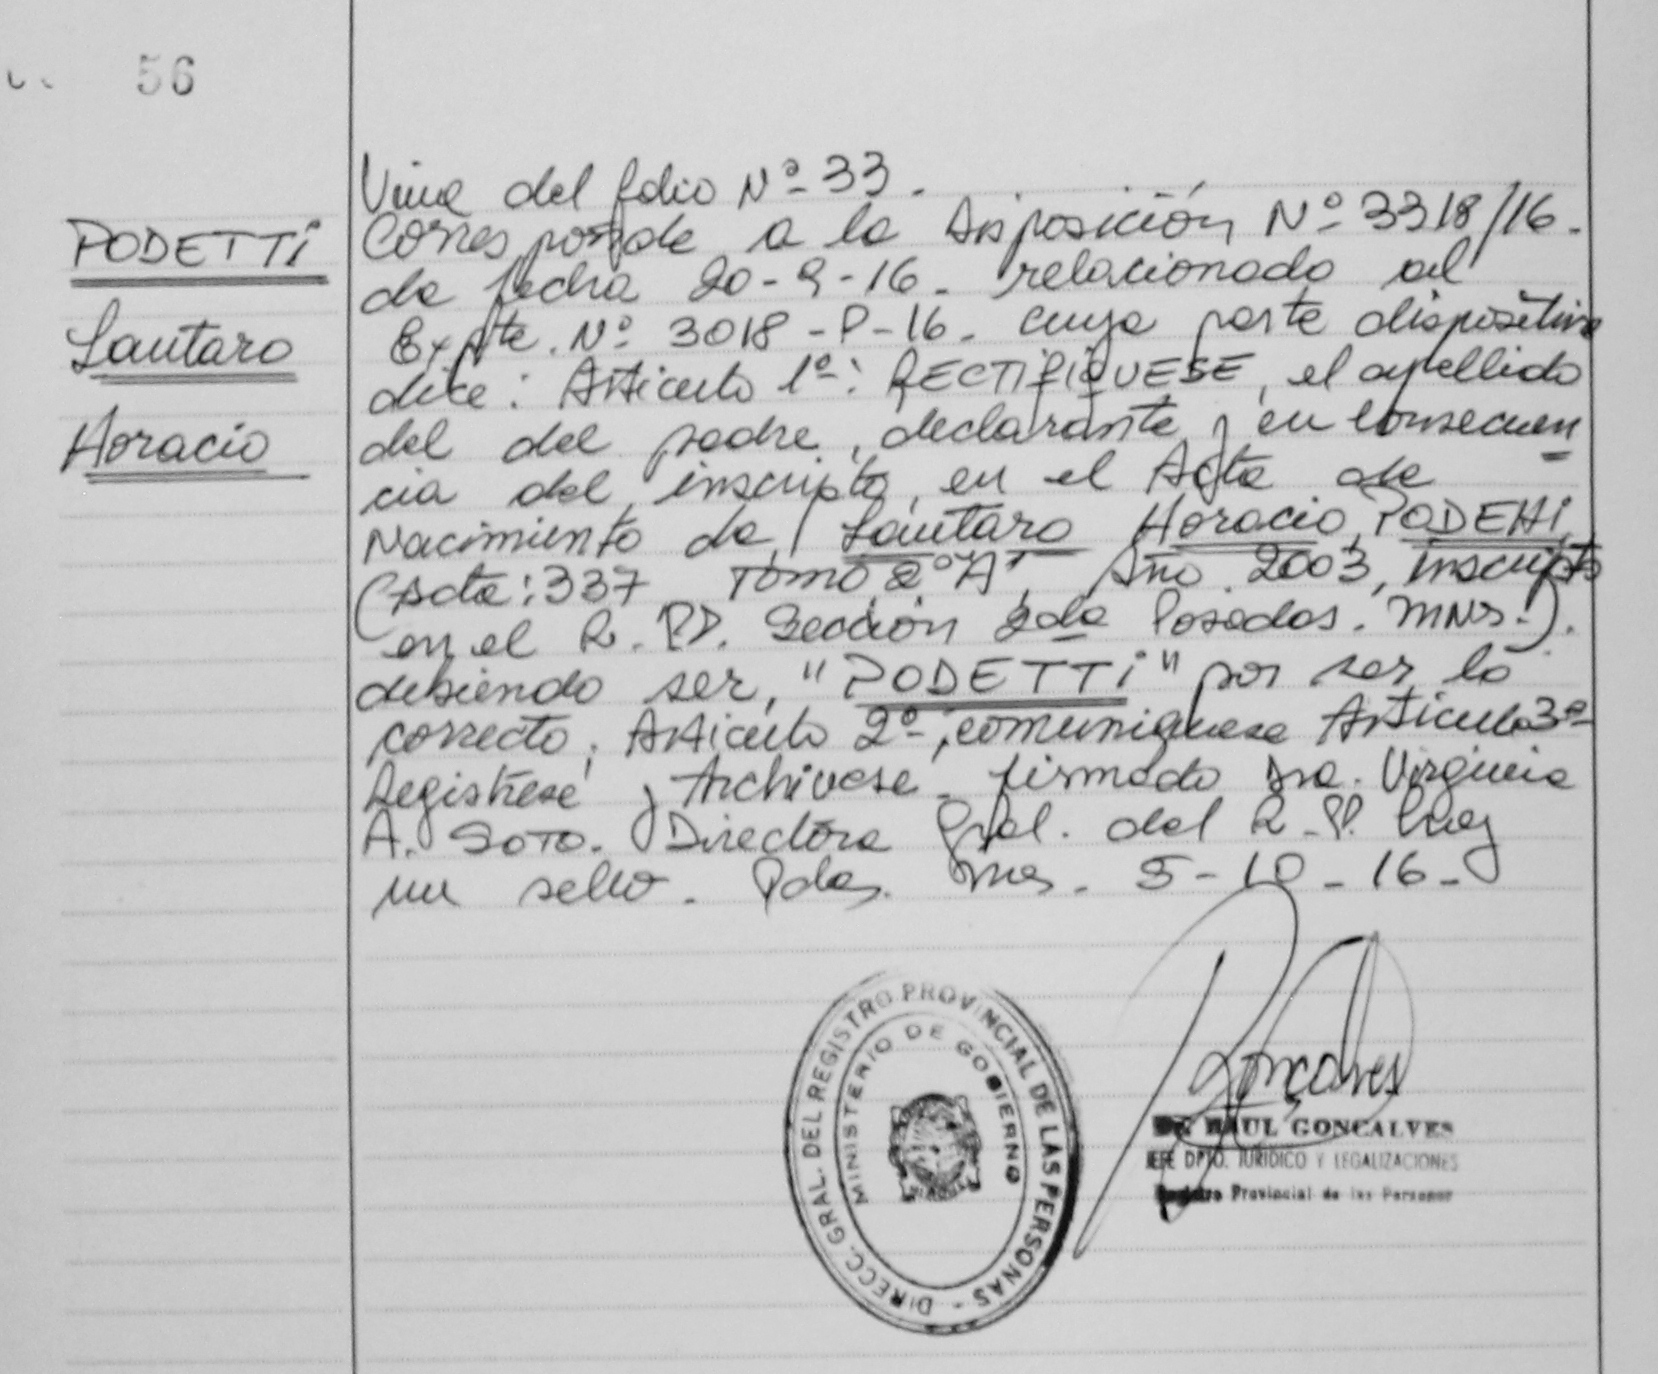 56
PODETTI
Lautaro
Horacio
Viene del folio Nº 33.
Corresponde a la Disposición Nº 3318/16.
de fecha 20-9-16. relacionado al
Expte. Nº 3018-P-16. cuya parte dispositiva
dice: Articulo 1º: RECTIFIQUESE, el apellido
del del padre, declarante y en consecuen
cia del inscripto, en el Acta de
Nacimiento de, Lautaro Horacio, PODETTI,
(Acta: 337 Tomo, 2º "A", Año 2003, inscripto
en el R. PP. Sección 2da Posadas. MNS.).
debiendo ser, "PODETTI" por ser lo
correcto, Articulo 2º, comuniquese Articulo 3º
Registrese y Archivese. firmado Dra. Virginia
A. SOTO. Directora Gral. del R.PP. hay
un sello. Pdas. Mnes. 5-10-16.
DIRECC. GRAL. DEL REGISTRO PROVINCIAL DE LAS PERSONAS -
MINISTERIO DE GOBIERNO
Gonçalves
DR. RAUL GONCALVES
JEFE DPTO. JURIDICO Y LEGALIZACIONES
Registro Provincial de las Personas